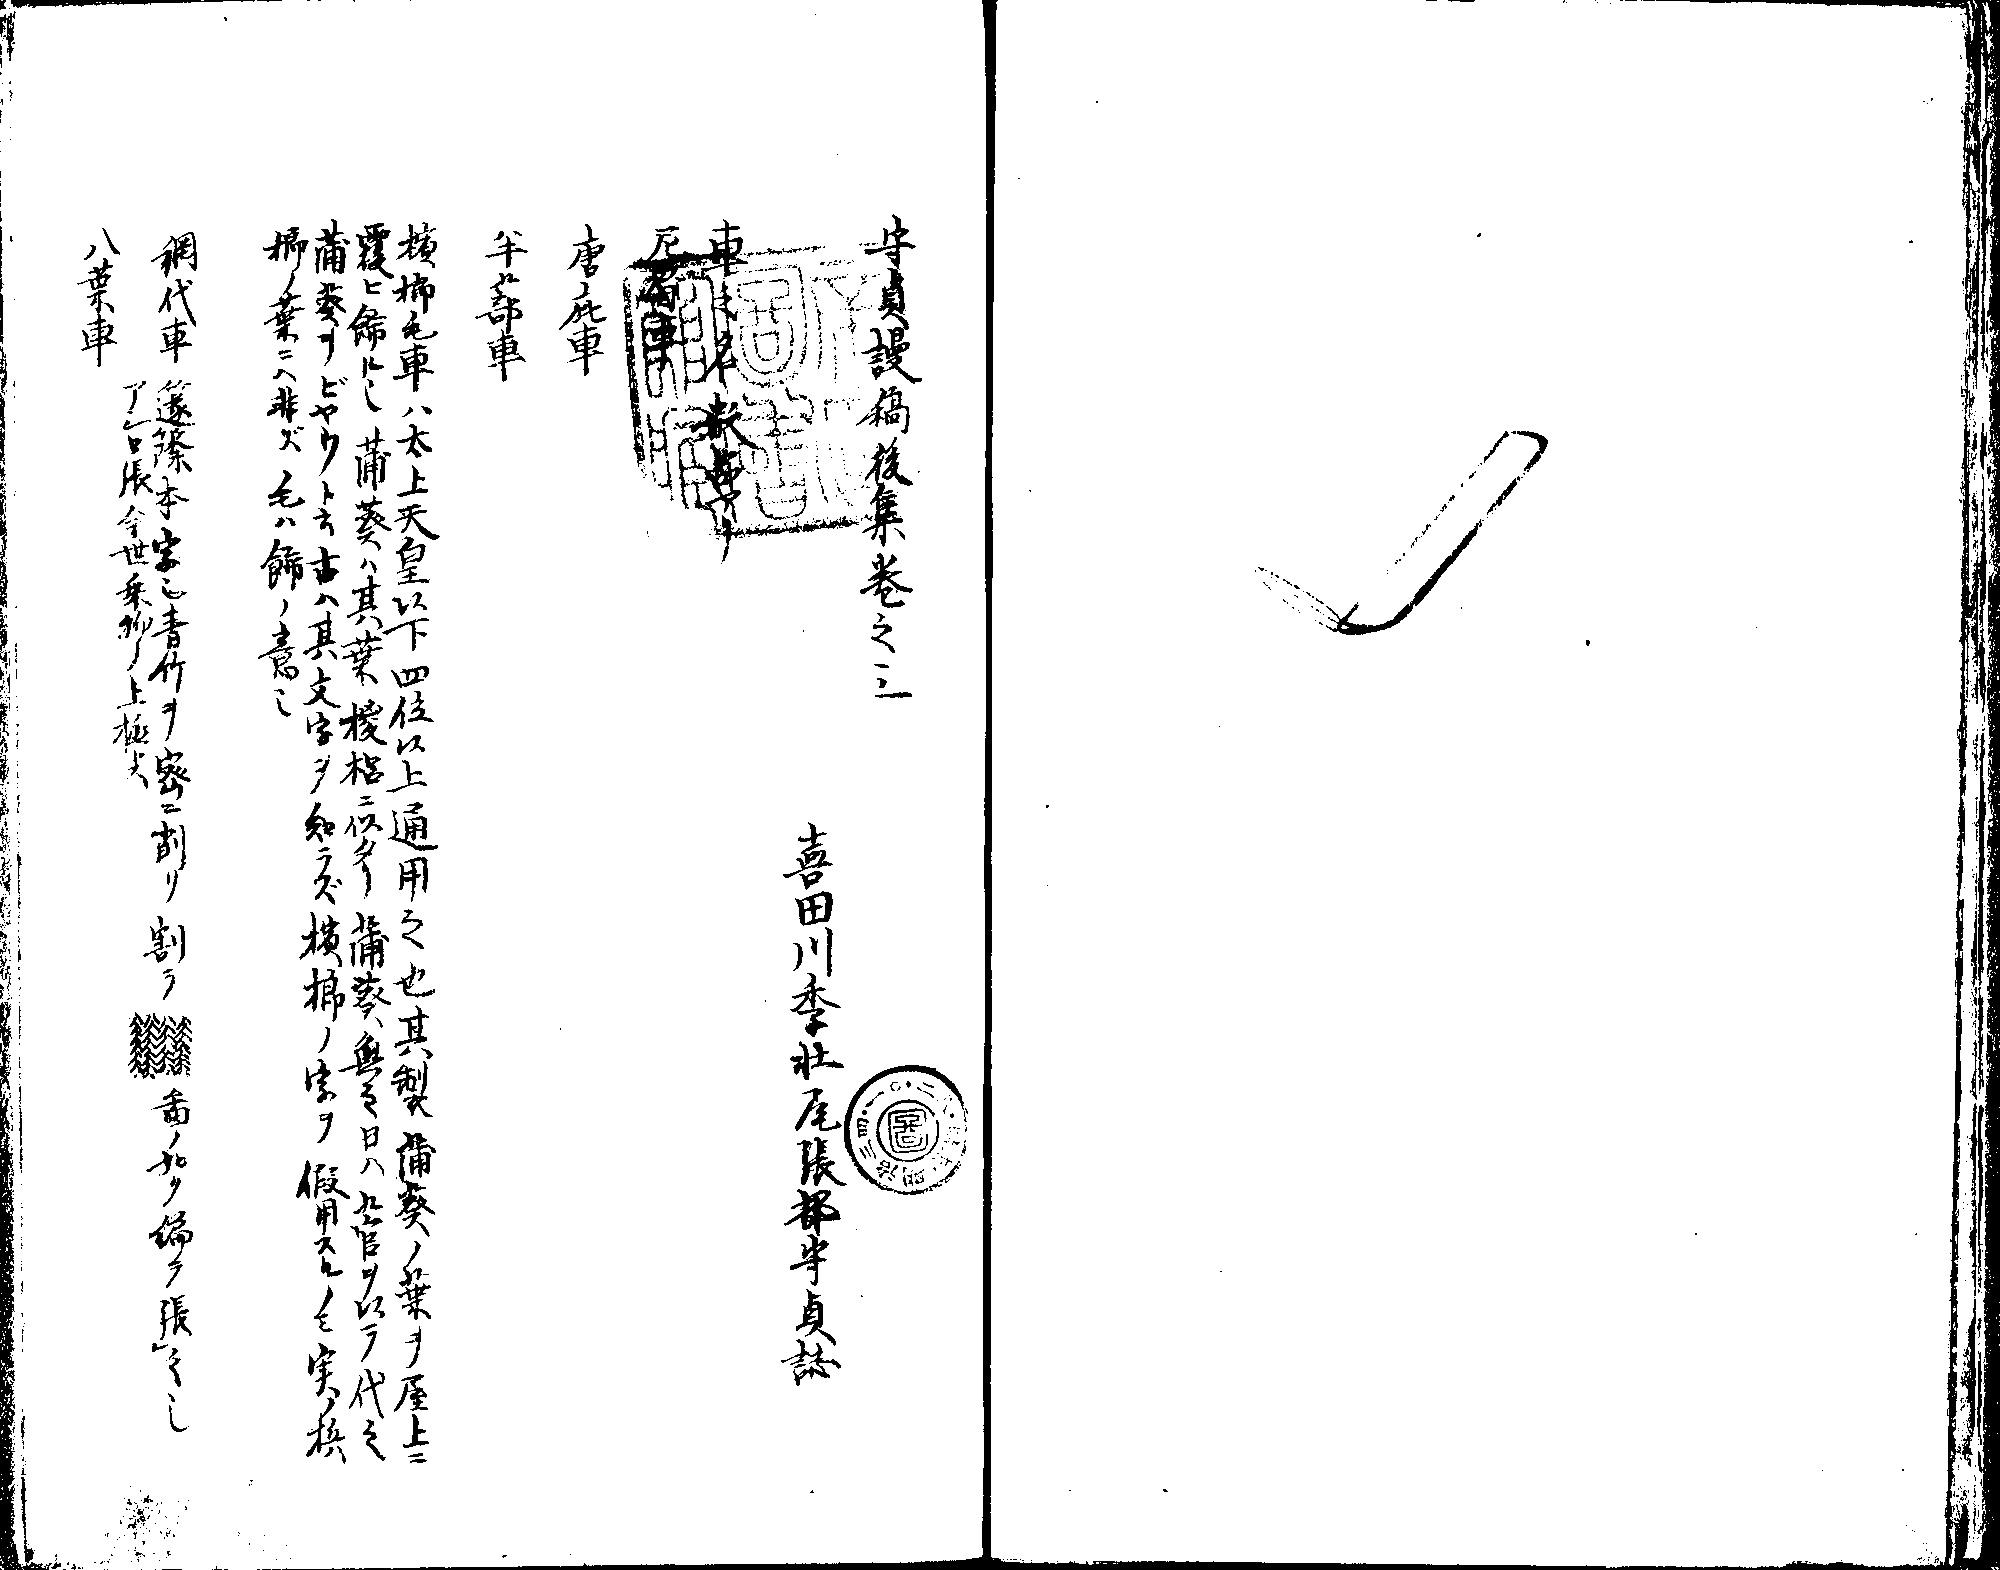 守貞謾稿後集巻之三
喜田川季荘尾張部守貞誌
車之名数品アリ
唐ノ庇車
半蔀車
檳榔毛車ハ太上天皇以下四位以上通用之也其製蒲葵ノ葉ヲ屋上ニ
覆ヒ飾ル也蒲葵ハ其葉椶梠ニ似タリ蒲葵無之日ハ菅ヲ以テ代之
蒲葵ヲビヤウト云古ハ其文字ヲ知ラズ檳榔ノ字ヲ假用スルノミ実ノ檳
榔ノ葉ニハ非ズ毛ハ飾ノ意也
網代車 籧篨本字也青竹ヲ密ニ削リ割テ 図ノ如ク編テ張之也
アジロ張今世乗物ノ上極尤
八葉車